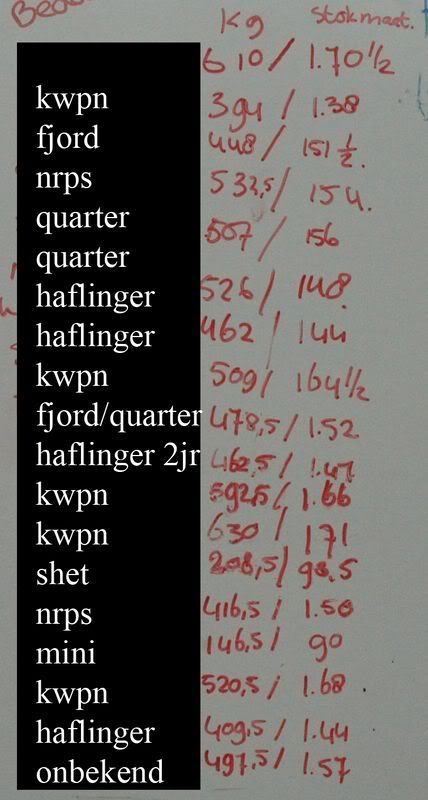 Kg Stokmaat.
kwpn 610 / 1.70 1/2
fjord 394 / 1.38
nrps 448 / 151 1/2.
quarter 533,5 / 154.
quarter 507 / 156
haflinger 526 / 148
haflinger 462 / 144
kwpn 509 / 164 1/2
fjord/quarter 478,5 / 1.52
haflinger 2jr 462,5 / 1.47
kwpn 592,5 / 1.66
kwpn 630 / 171
shet 208,5 / 98.5
nrps 416,5 / 1.50
mini 146,5 / 90
kwpn 520,5 / 1.68
haflinger 409,5 / 1.44
onbekend 497,5 / 1.57